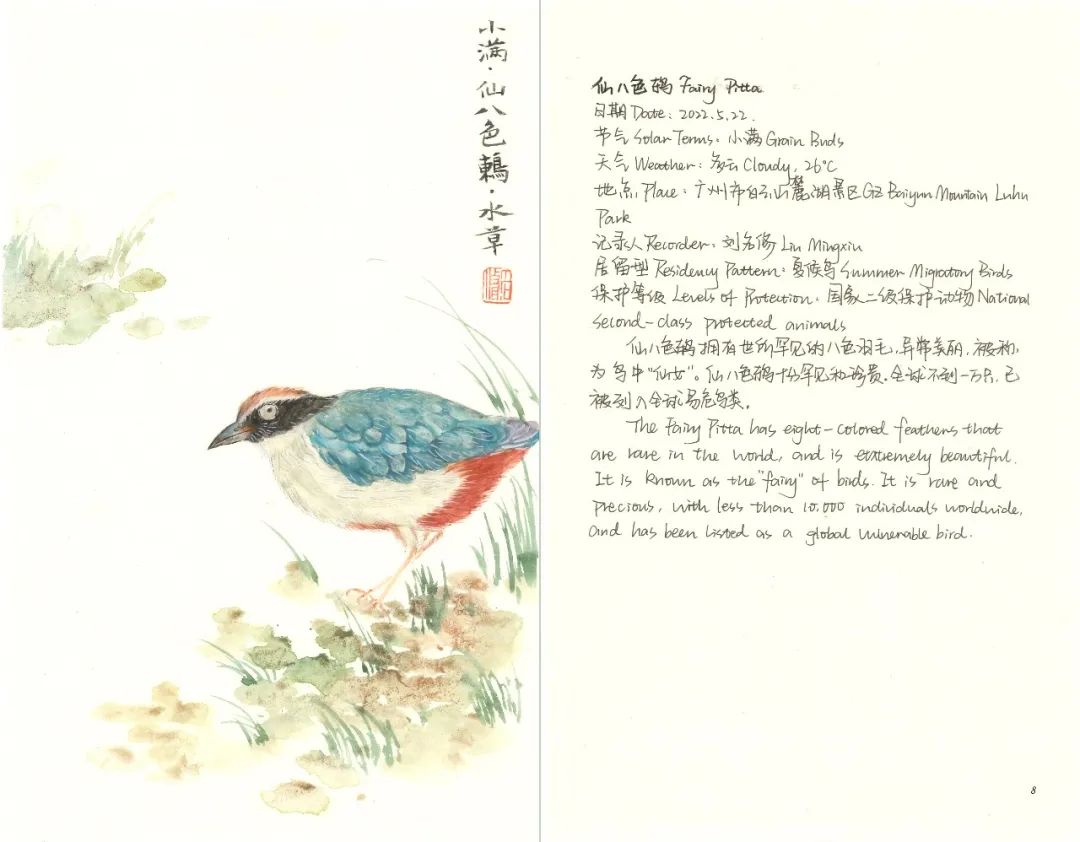 小满·仙八色鶇·水草
仙八色鸫 Fairy Pitta
日期 Date: 2022.5.22.
节气 Solar Terms: 小满 Grain Buds
天气 Weather: 多云 Cloudy, 26°C
地点 Place: 广州市白云山麓湖景区 GZ Baiyun Mountain Luhu
Park
记录人 Recorder: 刘名修 Liu Mingxiu
居留型 Residency Pattern: 夏候鸟 Summer Migratory Birds
保护等级 Levels of Protection: 国家二级保护动物 National
second-class protected animals
仙八色鸫拥有世所罕见的八色羽毛,异常美丽,被称
为鸟中“仙女”。仙八色鸫十分罕见和珍贵,全球不到一万只,已
被列入全球易危鸟类。
The Fairy Pitta has eight-colored feathers that
are rare in the world, and is extremely beautiful.
It is known as the "fairy" of birds. It is rare and
precious, with less than 10,000 individuals worldwide,
and has been listed as a global vulnerable bird.
8